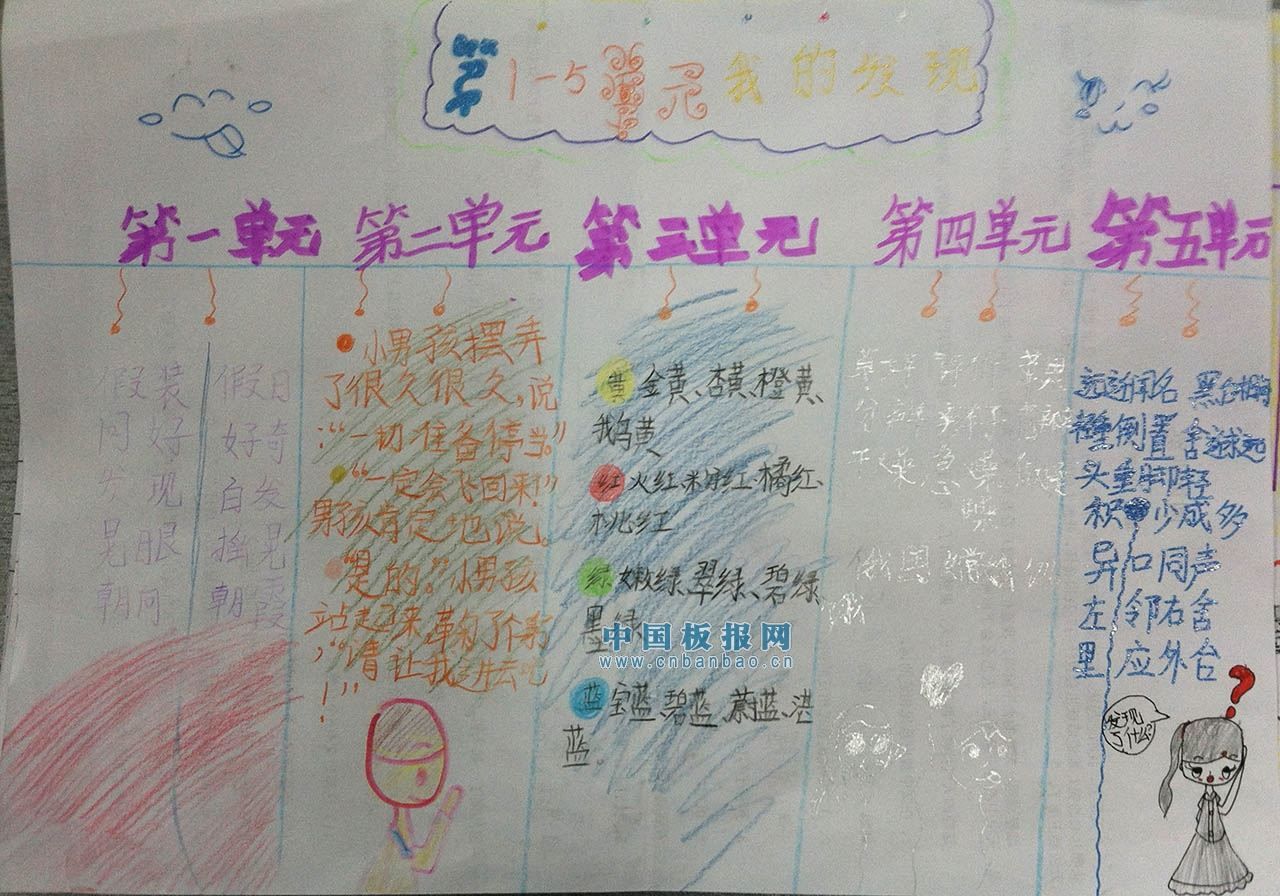 第1-5单元我的发现
第一单元
假装 假日
问好 好奇
发现 白发
晃眼 摇晃
朝向 朝霞
第二单元
小男孩摆弄
了很久很久,说
:“一切准备停当。”
“一定会飞回来!”
男孩肯定地说。
“是的。”小男孩
站起来鞠了个躬
,“请让我进去吧
!”
第三单元
黄 金黄、杏黄、橙黄、
鹅黄
红 火红、粉红、橘红、
桃红
绿 嫩绿、翠绿、碧绿
墨绿
蓝 宝蓝、碧蓝、蔚蓝、湛
蓝。
第四单元
第五单元
远近闻名 黑白相间
倒置 舍近求远
头重脚轻
积少成多
异口同声
左邻右舍
里应外合
发现
了什么?
中国板报网
www.cnbanbao.cn